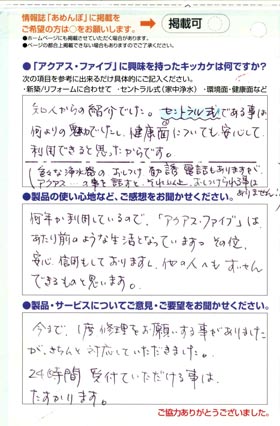 情報誌「あめんぼ」に掲載を
ご希望の方は○をお願いします。
掲載可
●ホームページにも掲載させていただく場合があります。
●ページの都合上掲載できない場合もありますのでご了承ください。
●「アクアス・ファイブ」に興味を持ったキッカケは何ですか?
次の項目を参考に出来るだけ具体的にご記入ください。
・新築/リフォームに合わせて ・セントラル式(家中浄水) ・環境面・健康面など
知人からの紹介でした。セントラル式である事は
何よりの魅力でしたし、健康面についても安心して
利用できると思ったからです。
色々な浄水器のおしつけ勧誘電話もありますが、
アクアス…の事を話すと、それ以上、おしつけられる事は
ありません!
●製品の使い心地など、ご感想をお聞かせください。
何年か利用しているので、「アクアス・ファイブ」は、
あたり前のような生活となっています。その位、
安心、信用もしておりますし、他の人にもすいせん
できるものと思います。
●製品・サービスについてご意見・ご要望をお聞かせください。
今まで、1度修理をお願いする事がありました
が、きちんと対応していただきました。
24時間受付ていただける事は、
たすかります。
ご協力ありがとうございました。